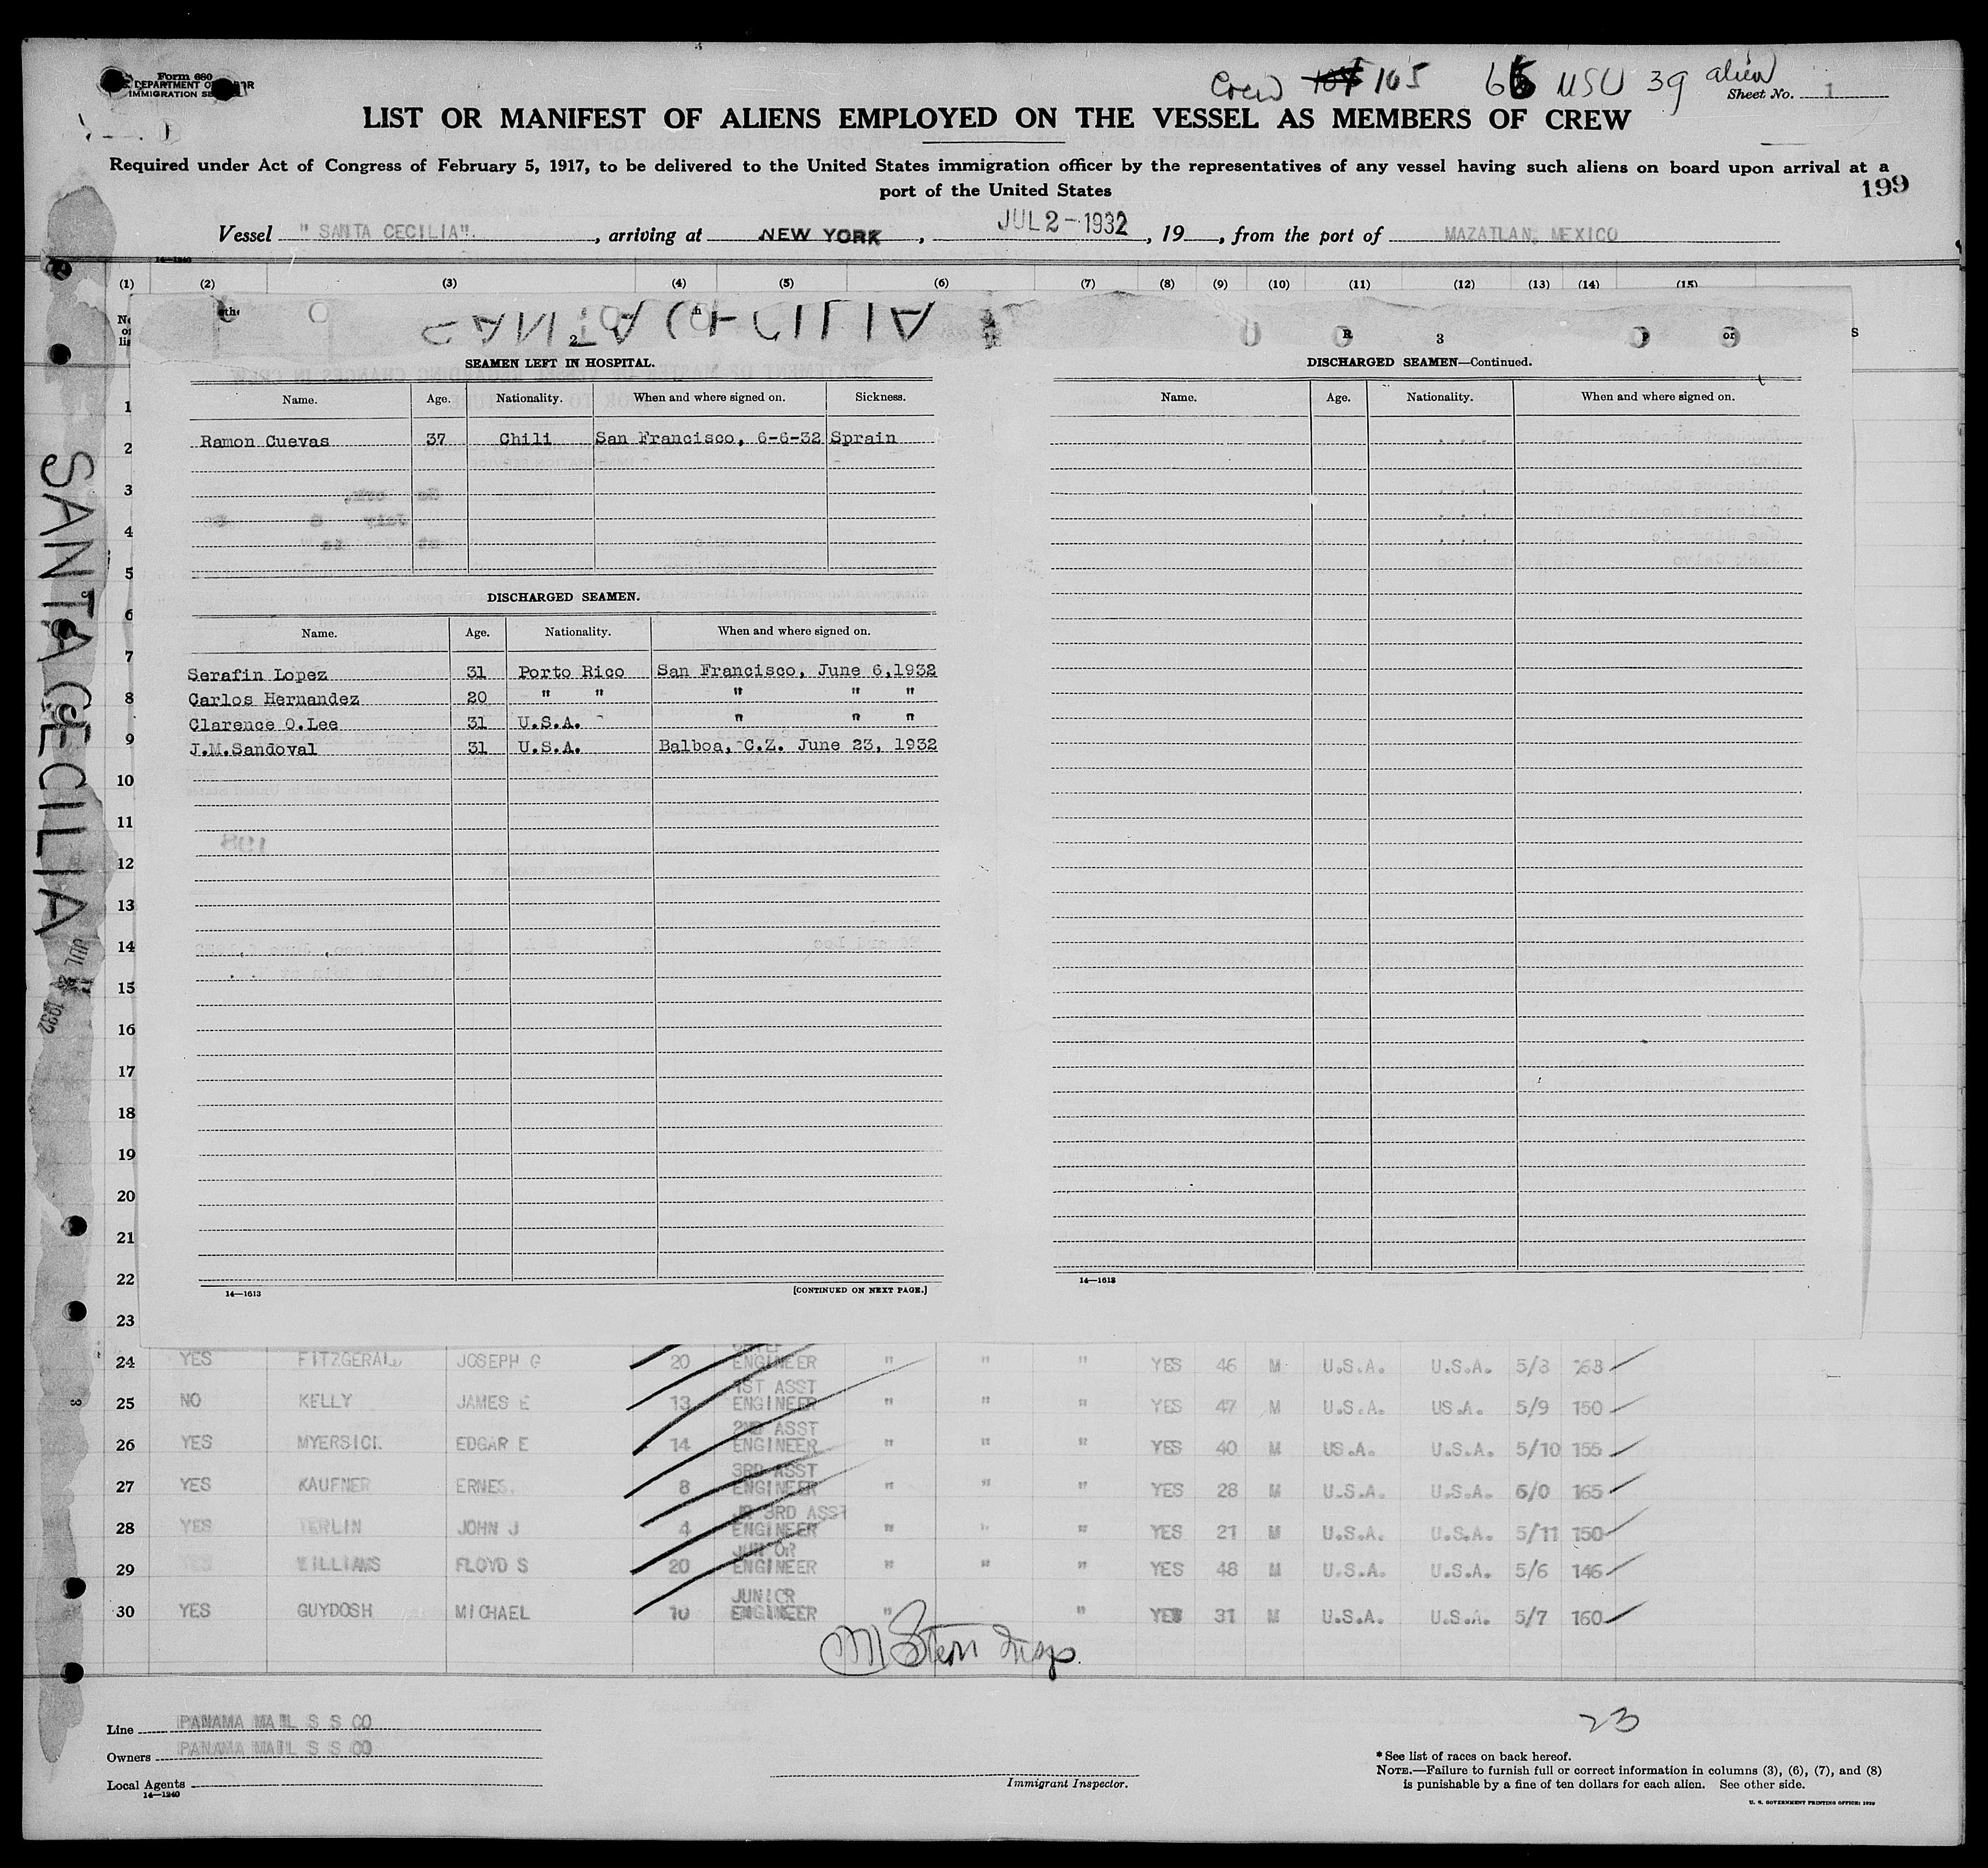 Form 680
DEPARTMENT OF
IMMIGRATION
Crew 105 USC 39 alien
Sheet No. 1
LIST OR MANIFEST OF ALIENS EMPLOYED ON THE VESSEL AS MEMBERS OF CREW
Required under Act of Congress of February 5, 1917, to be delivered to the United States immigration officer by the representatives of any vessel having such aliens on board upon arrival at a
port of the United States
199
Vessel "SANTA CECILIA". , arriving at NEW YORK , JUL 2-1932 , 19 , from the port of MAZATLAN, MEXICO
14—1240
(1) (2) (3) (4) (5) (6) (7) (8) (9) (10) (11) (12) (13) (14) (15)
SANTA CECILIA
2
SEAMEN LEFT IN HOSPITAL.
Name. Age. Nationality. When and where signed on. Sickness.
Ramon Cuevas 37 Chili San Francisco, 6-6-32 Sprain
DISCHARGED SEAMEN.
Name. Age. Nationality. When and where signed on.
Serafin Lopez 31 Porto Rico San Francisco, June 6,1932
Carlos Hernandez 20 " " " " "
Clarence O.Lee 31 U.S.A. " " "
J.M.Sandoval 31 U.S.A. Balboa, C.Z. June 23, 1932
14—1613
[CONTINUED ON NEXT PAGE.]
3
DISCHARGED SEAMEN—Continued.
Name. Age. Nationality. When and where signed on.
14—1613
SANTA CECILIA
JUL 2 1932
1
2
3
4
5
6
7
8
9
10
11
12
13
14
15
16
17
18
19
20
21
22
23
24 YES FITZGERALD JOSEPH G 20 ENGINEER " " " YES 46 M U.S.A. U.S.A. 5/8 168
25 NO KELLY JAMES E 13 1ST ASST ENGINEER " " " YES 47 M U.S.A. US.A. 5/9 150
26 YES EDGAR E 14 2ND ASST ENGINEER " " " YES 40 M US.A. U.S.A. 5/10 155
27 YES KAUFNER 8 3RD ASST ENGINEER " " " YES 28 M U.S.A. U.S.A. 6/0 165
28 YES TERLIN JOHN J 4 JR 3RD ASST ENGINEER " " " YES 21 M U.S.A. U.S.A. 5/11 150
29 YES WILLIAMS FLOYD S 20 JUNIOR ENGINEER " " " YES 48 M U.S.A. U.S.A. 5/6 146
30 YES GUYDOSH MICHAEL 10 JUNIOR ENGINEER " " YES 31 M U.S.A. U.S.A. 5/7 160
M Stern Insp.
Line PANAMA MAIL S S CO
Owners PANAMA MAIL S S CO
Local Agents
14—1240
Immigrant Inspector.
23
* See list of races on back hereof.
NOTE.—Failure to furnish full or correct information in columns (3), (6), (7), and (8)
is punishable by a fine of ten dollars for each alien. See other side.
U. S. GOVERNMENT PRINTING OFFICE: 1929